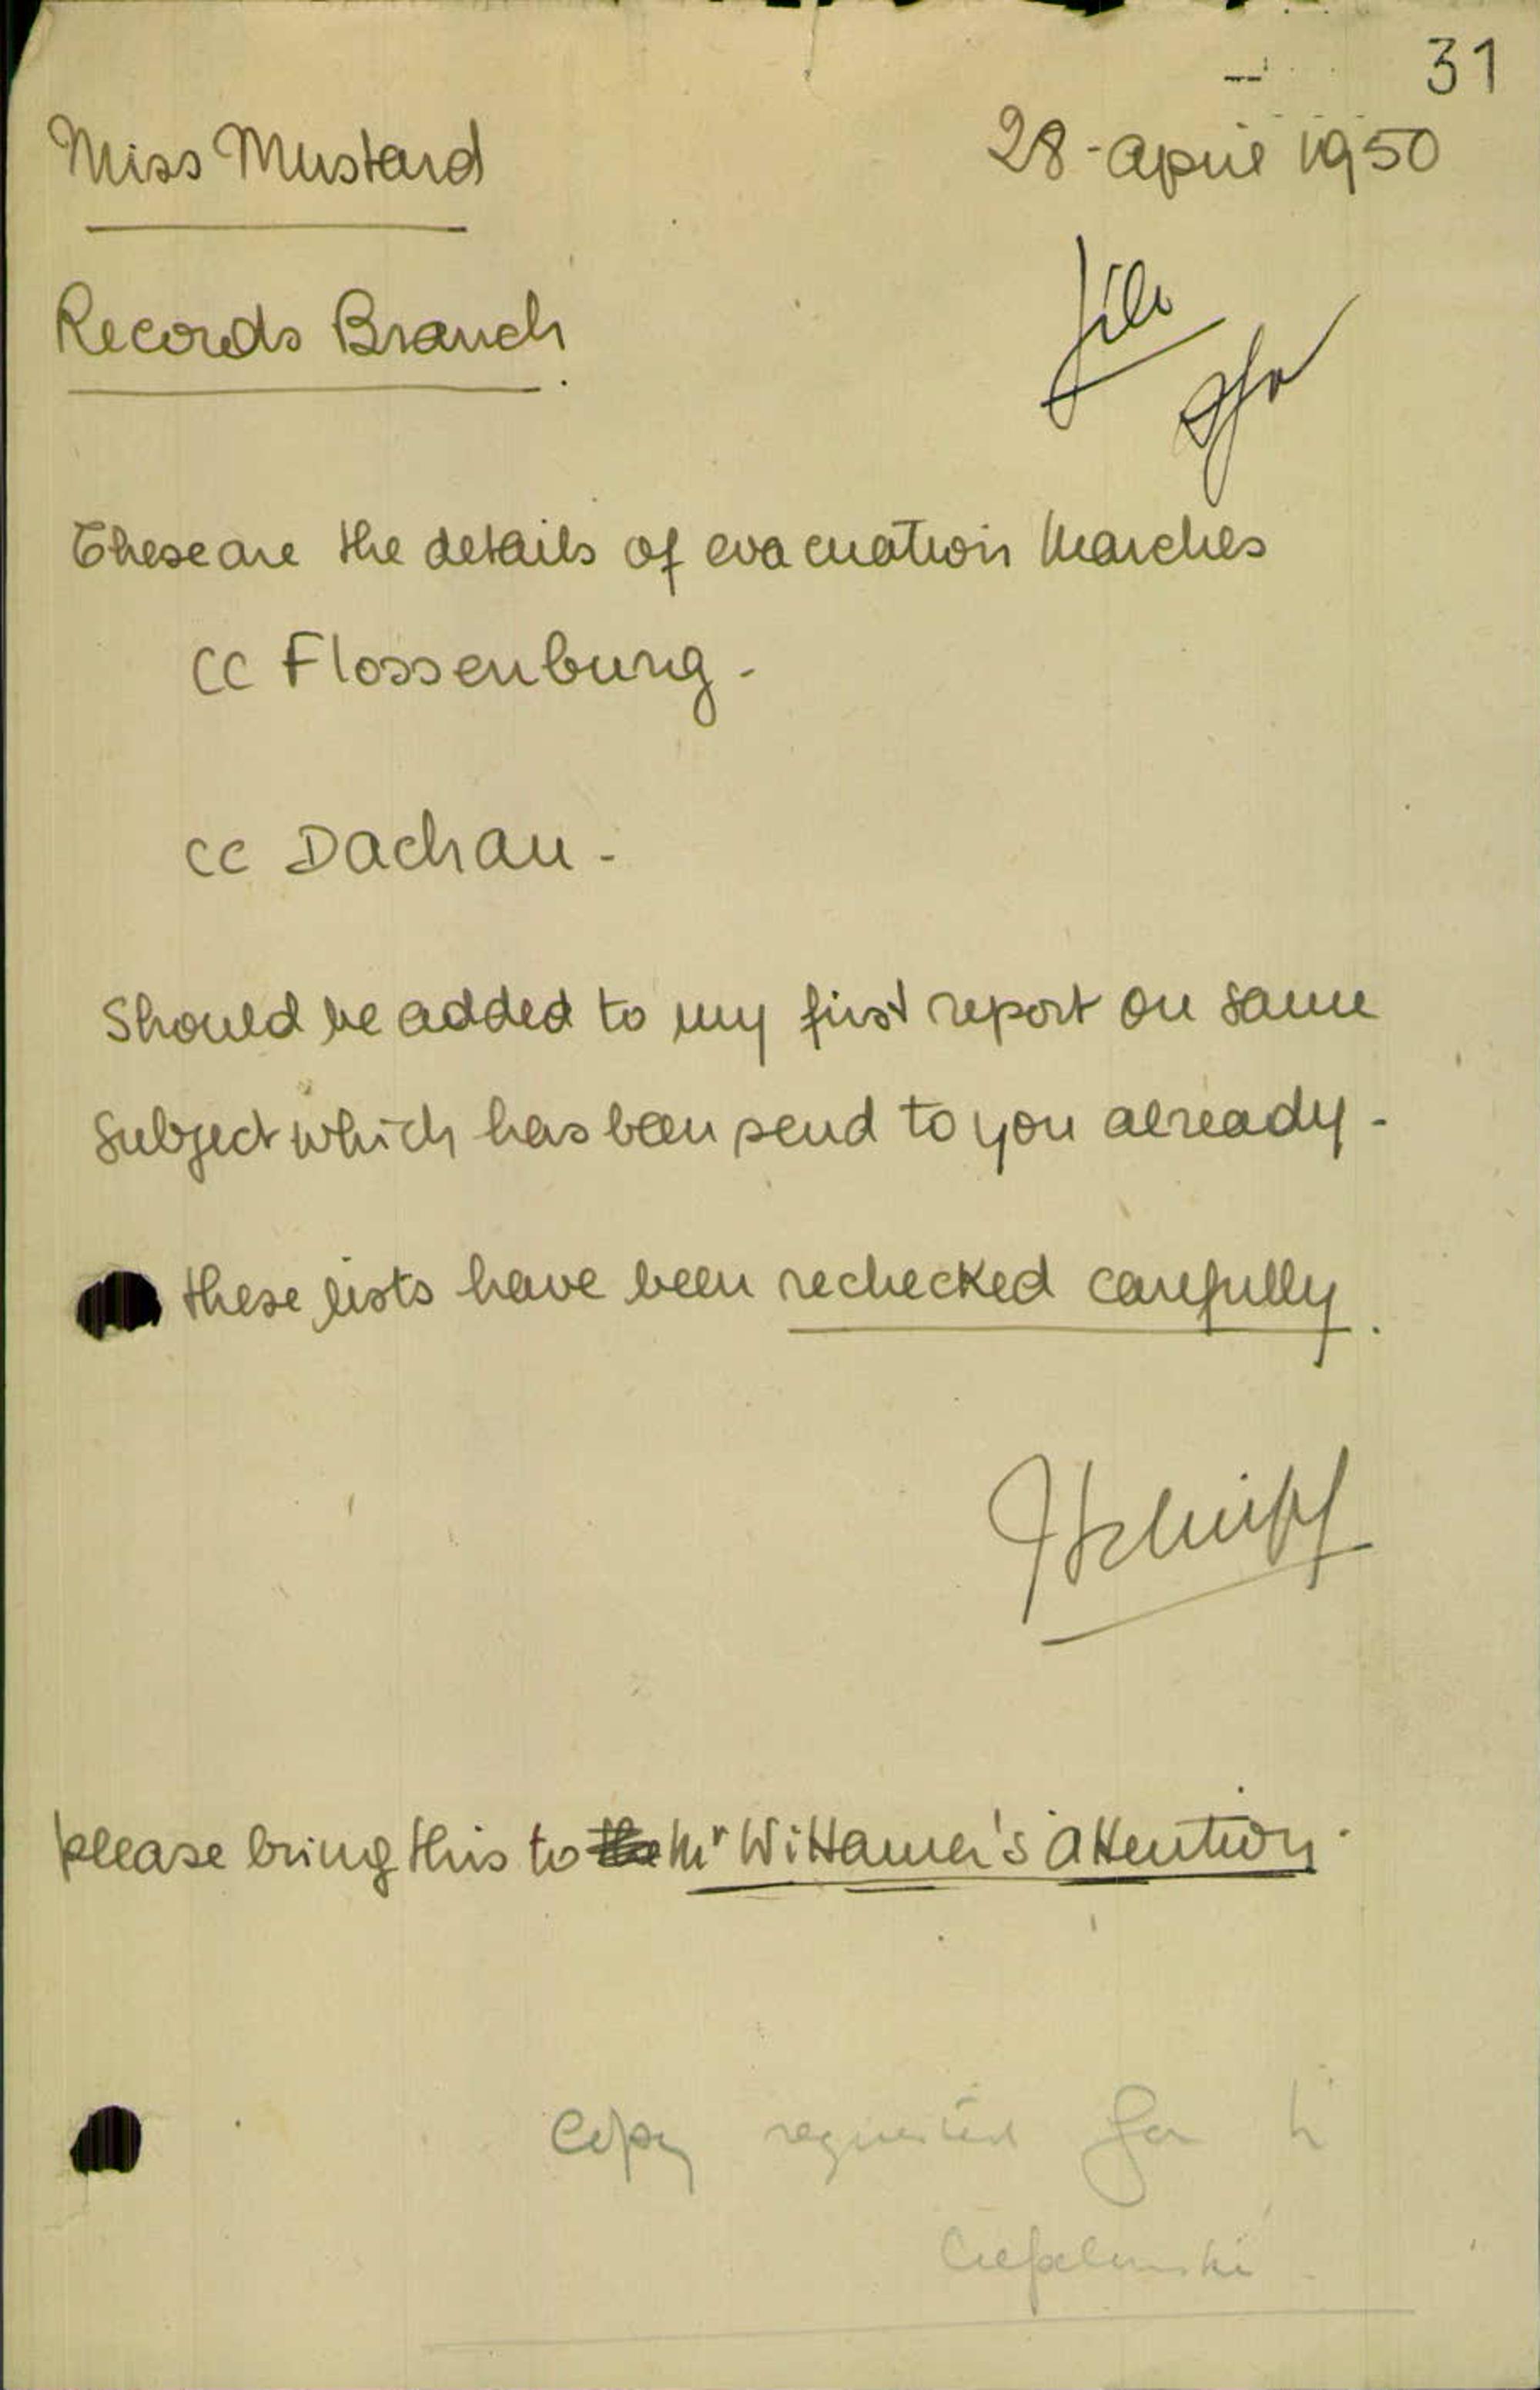 31
Miss Mustard
28 - April 1950
Records Branch.
file
These are the details of evacuation Marches
CC Flossenburg -
CC Dachau -
Should be added to my first report on same
Subject which has been send to you already -
these lists have been rechecked carefully.
please bring this to Mr Wittamer's attention.
Copy requested for